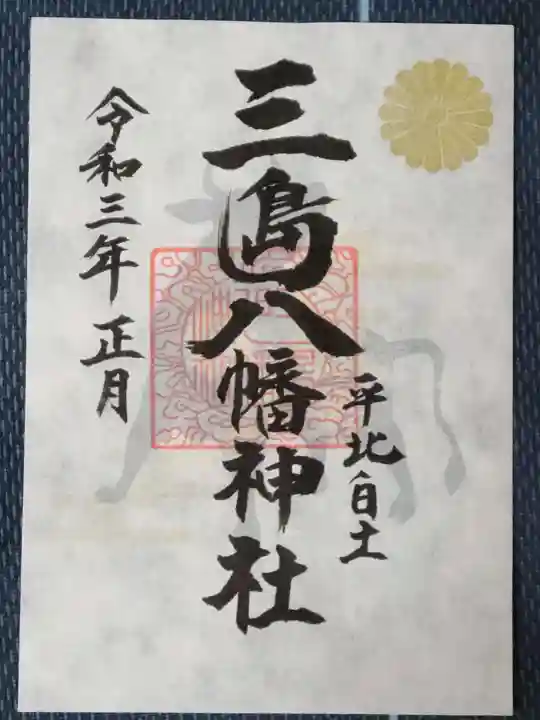 平北白土
三島八幡神社
令和三年 正月